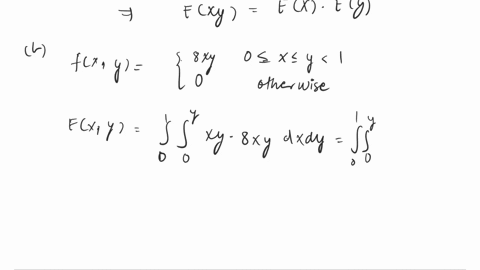 ⇒ E(xy) = E(x) · E(y)
(b) f(x, y) = { 8xy 0 ≤ x ≤ y < 1
0 otherwise
E(x, y) = ∫₀¹ ∫₀ʸ xy - 8xy dxdy = ∫₀¹ ∫₀ʸ